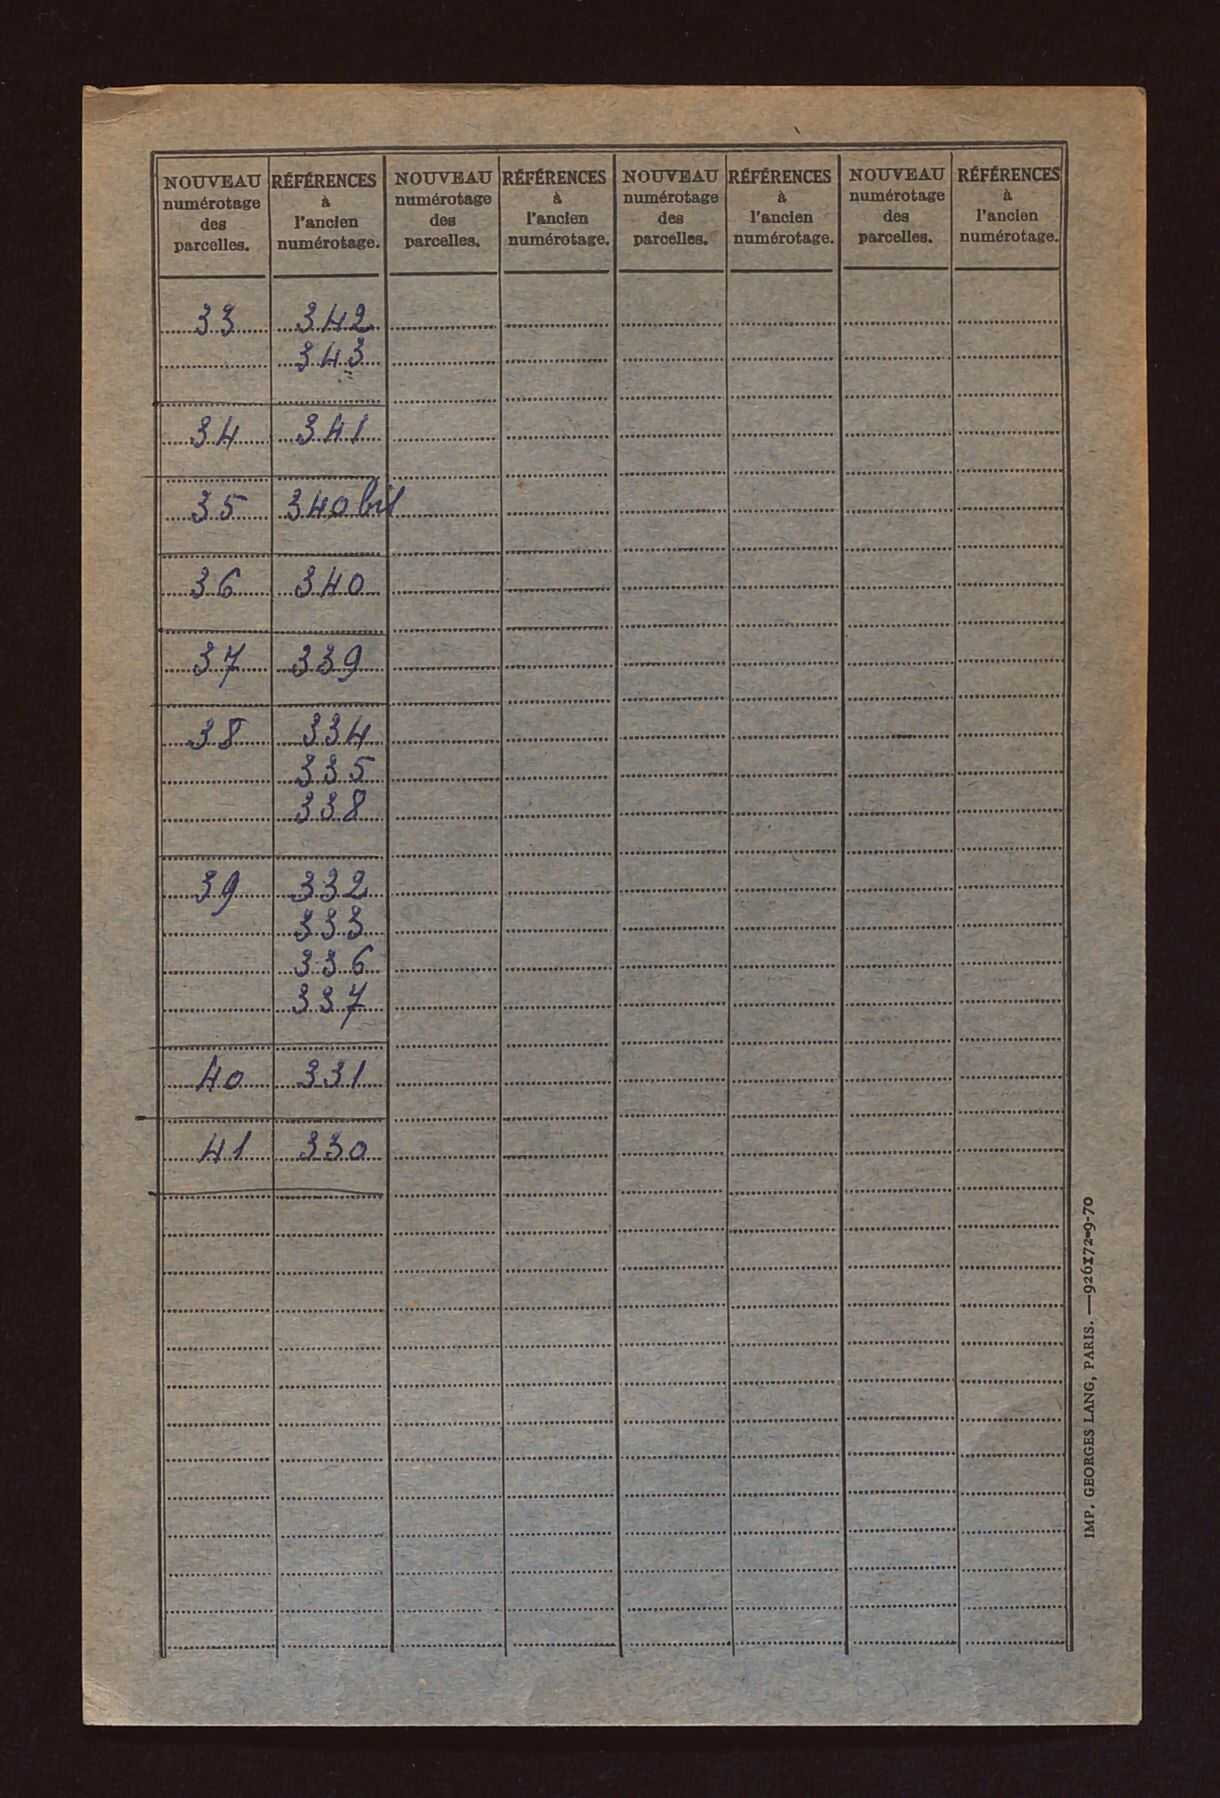 NOUVEAU numérotage des parcelles. RÉFÉRENCES à l'ancien numérotage. NOUVEAU numérotage des parcelles. RÉFÉRENCES à l'ancien numérotage. NOUVEAU numérotage des parcelles. RÉFÉRENCES à l'ancien numérotage. NOUVEAU numérotage des parcelles. RÉFÉRENCES à l'ancien numérotage.
33 342
343
34 341
35 340 bis
36 340
37 339
38 334
335
338
39 332
333
336
337
40 331
41 330
IMP. GEORGES LANG, PARIS. —926172-9-70